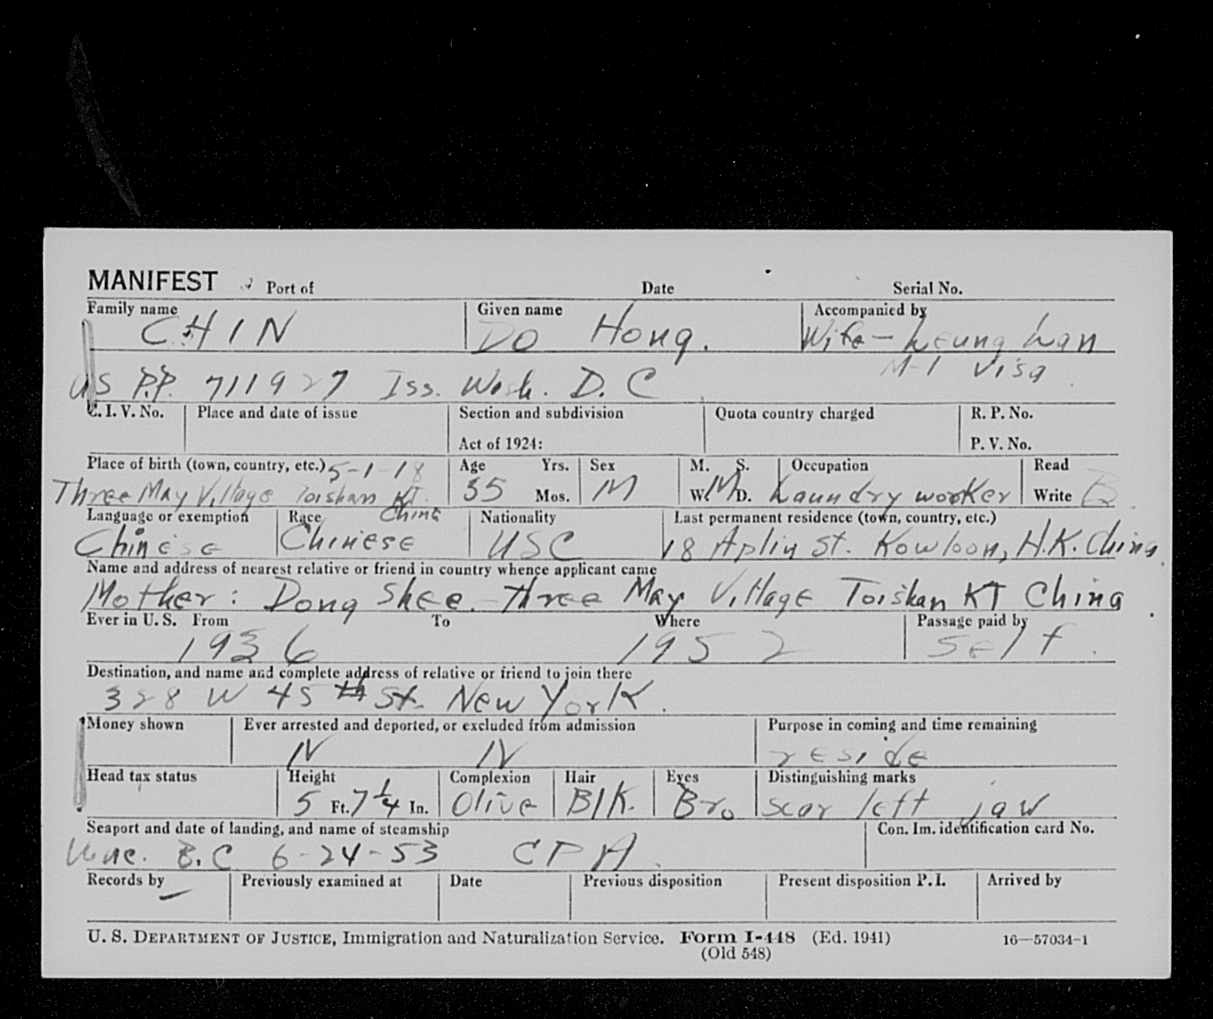 MANIFEST Port of Date Serial No.
Family name Given name Accompanied by
CHIN Do Hong. Wife - Leung Lan
M-1 Visa
US P.P. 711927 Iss. Wash. D.C
C. I. V. No. Place and date of issue Section and subdivision Quota country charged R. P. No.
Act of 1924: P. V. No.
Place of birth (town, country, etc.) 5-1-18 Age Yrs. Sex M. S. Occupation Read
Three May Village Toishan KT. China 35 Mos. M W. M D. Laundry worker Write
Language or exemption Race Nationality Last permanent residence (town, country, etc.)
Chinese Chinese USC 18 Apliu St. Kowloon, H.K. China
Name and address of nearest relative or friend in country whence applicant came
Mother: Dong Shee - Three May Village Toishan KT China
Ever in U. S. From To Where Passage paid by
1936 1952 Self.
Destination, and name and complete address of relative or friend to join there
328 W 45th St. New York.
Money shown Ever arrested and deported, or excluded from admission Purpose in coming and time remaining
N N reside
Head tax status Height Complexion Hair Eyes Distinguishing marks
5 Ft. 7 1/4 In. Olive Blk. Bro scar left jaw
Seaport and date of landing, and name of steamship Con. Im. identification card No.
Vanc. B.C 6-24-53 CPA.
Records by Previously examined at Date Previous disposition Present disposition P. I. Arrived by
U. S. DEPARTMENT OF JUSTICE, Immigration and Naturalization Service. Form I-448 (Ed. 1941) 16—57034-1
(Old 548)